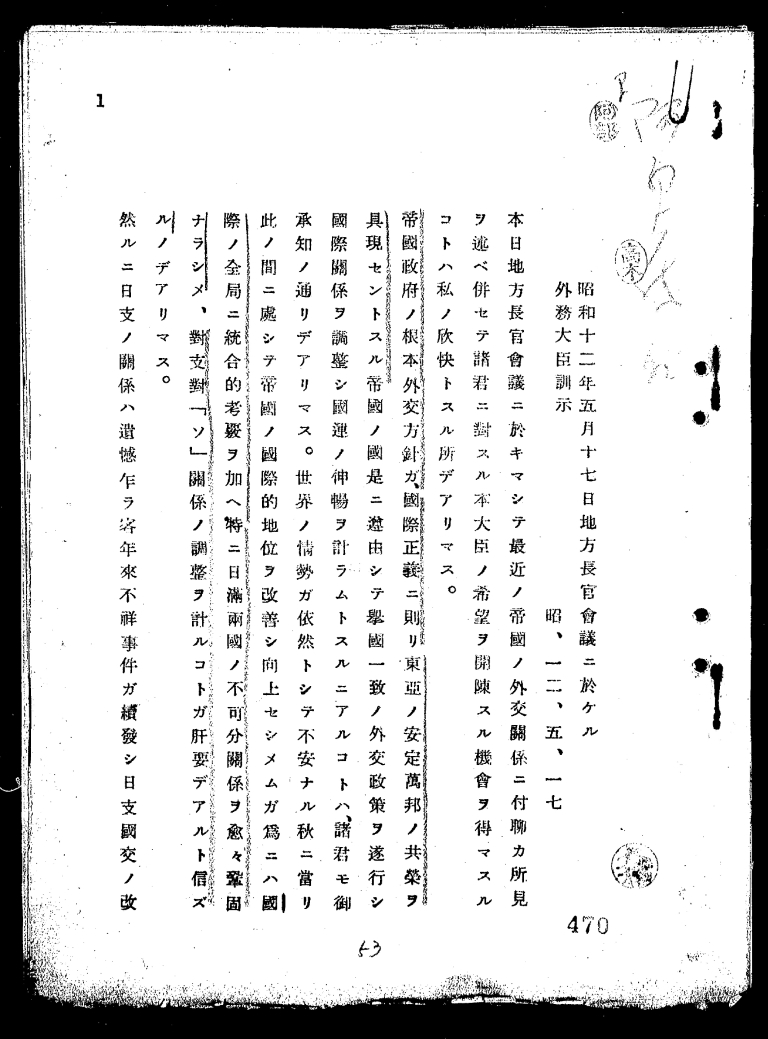 1
阿部
高木
昭和十二年五月十七日地方長官會議ニ於ケル
外務大臣訓示
昭、一二、五、一七
本日地方長官會議ニ於キマシテ最近ノ帝國ノ外交關係ニ付聊カ所見
ヲ述ベ併セテ諸君ニ對スル本大臣ノ希望ヲ開陳スル機會ヲ得マスル
コトハ私ノ欣快トスル所デアリマス。
帝國政府ノ根本外交方針ガ、國際正義ニ則リ東亞ノ安定萬邦ノ共榮ヲ
具現セントスル帝國ノ國是ニ遵由シテ擧國一致ノ外交政策ヲ遂行シ
國際關係ヲ調整シ國運ノ伸暢ヲ計ラムトスルニアルコトハ、諸君モ御
承知ノ通リデアリマス。世界ノ情勢ガ依然トシテ不安ナル秋ニ當リ
此ノ間ニ處シテ帝國ノ國際的地位ヲ改善シ向上セシメムガ爲ニハ國
際ノ全局ニ統合的考覈ヲ加ヘ、特ニ日滿兩國ノ不可分關係ヲ愈々鞏固
ナラシメ、對支對「ソ」關係ノ調整ヲ計ルコトガ肝要デアルト信ズ
ルノデアリマス。
然ルニ日支ノ關係ハ遺憾乍ラ客年來不祥事件ガ續發シ日支國交ノ改
470
53